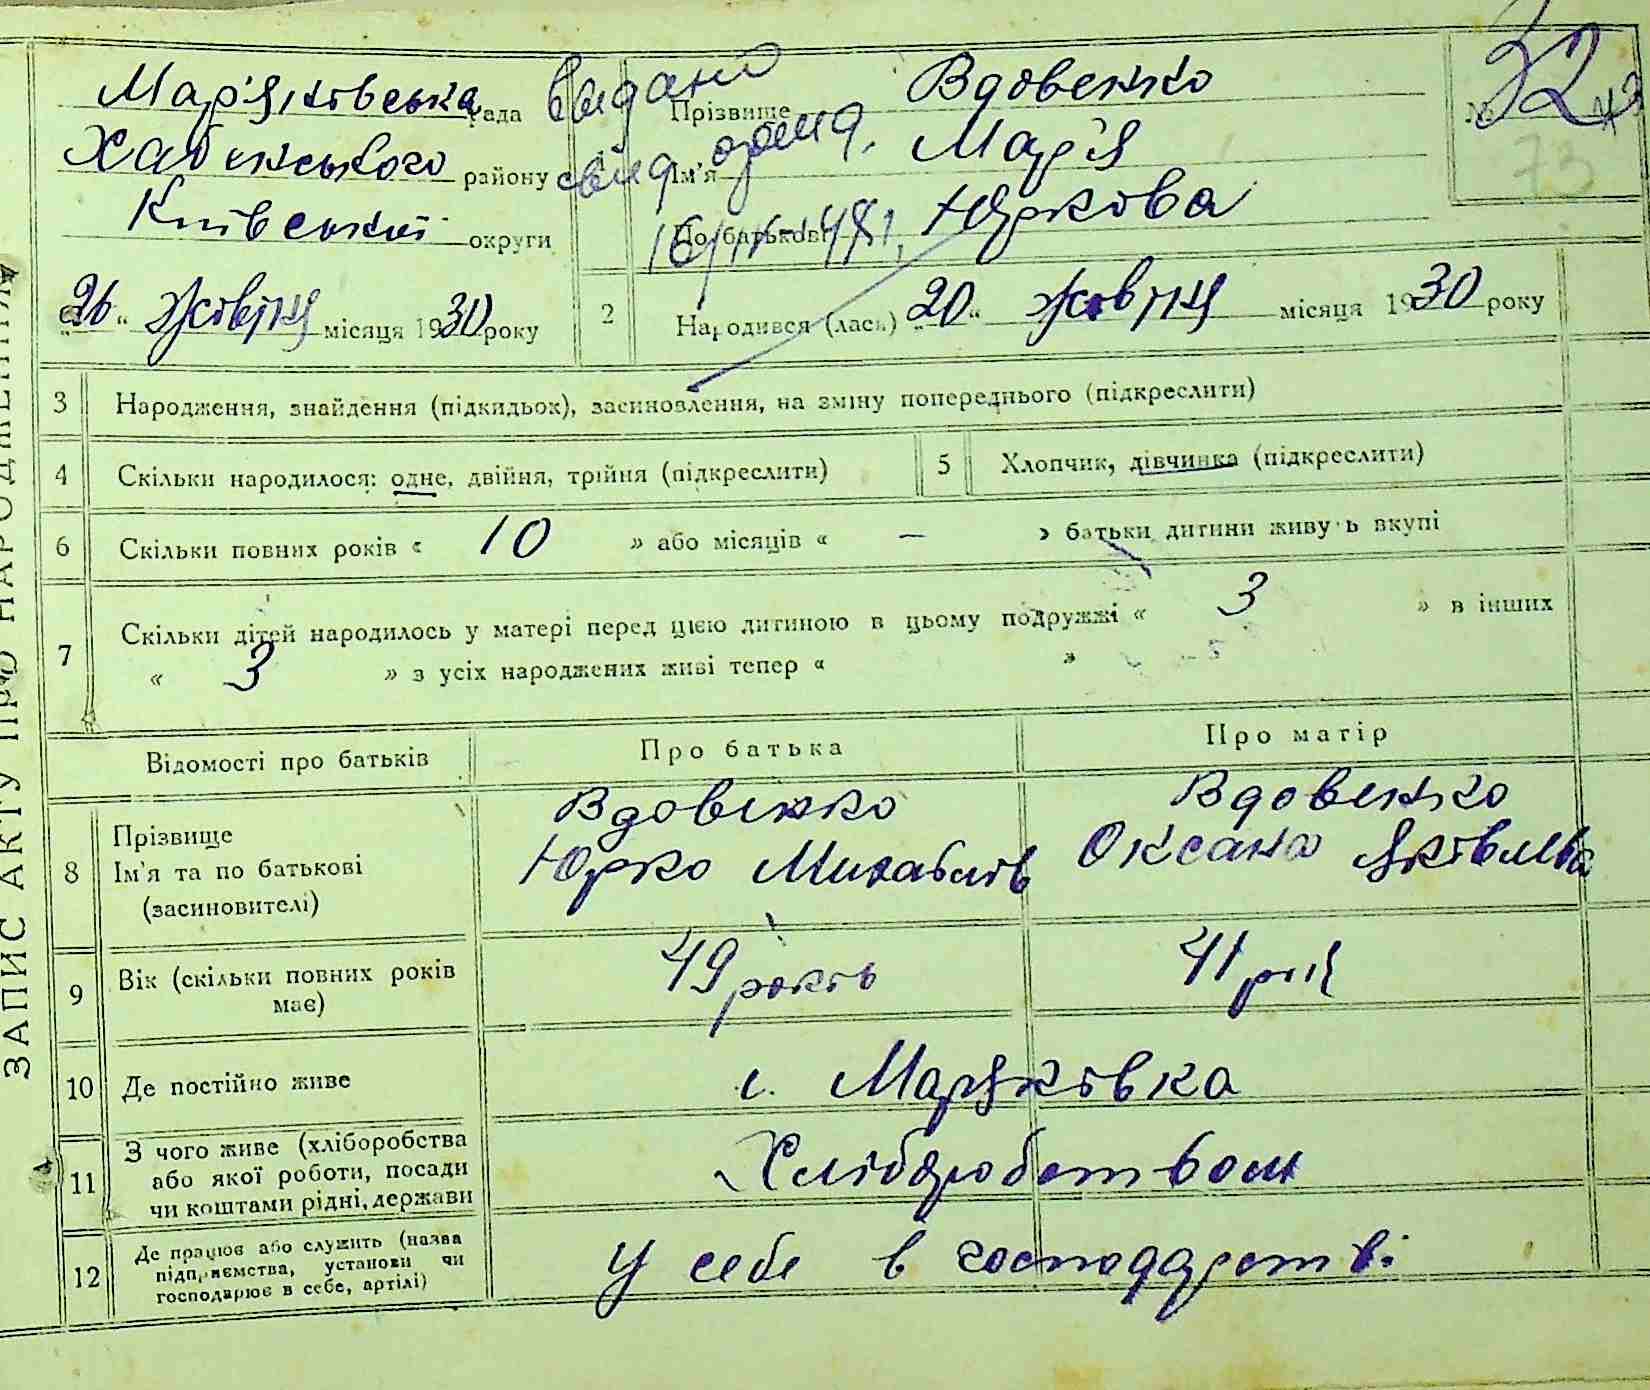 ЗАПИС АКТУ ПРО НАРОДЖЕННЯ
Мар'яновська рада
Хабенського району
Київської округи
„26“ Жовтня місяця 1930 року
видано
свід.
16/IV-48
№ 32
73
Прізвище Вдовенко
Ім'я Мар'я
По батькові Юркова
2 Народився (лась) „20“ Жовтня місяця 1930 року
3 Народження, знайдення (підкидьок), засиновлення, на зміну попереднього (підкреслити)
4 Скільки народилося: одне, двійня, трійня (підкреслити)
5 Хлопчик, дівчинка (підкреслити)
6 Скільки повних років « 10 » або місяців « — » батьки дитини живуть вкупі
7 Скільки дітей народилось у матері перед цією дитиною в цьому подружжі « 3 » в інших
« 3 » з усіх народжених живі тепер « »
Відомості про батьків Про батька Про матір
8 Прізвище
Ім'я та по батькові
(засиновителі)
Вдовенко
Юрко Михайлів
Вдовенко
Оксана Яківлівна
9 Вік (скільки повних років
має)
49 років 41 рік
10 Де постійно живе
с. Марянівка
11 З чого живе (хліборобства
або якої роботи, посади
чи коштами рідні, держави
Хліборобством
12 Де працює або служить (назва
підприємства, установи чи
господарює в себе, артілі)
У себе в господарстві